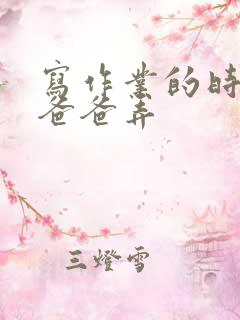 寫作業的時
爸爸弄
三燈雪